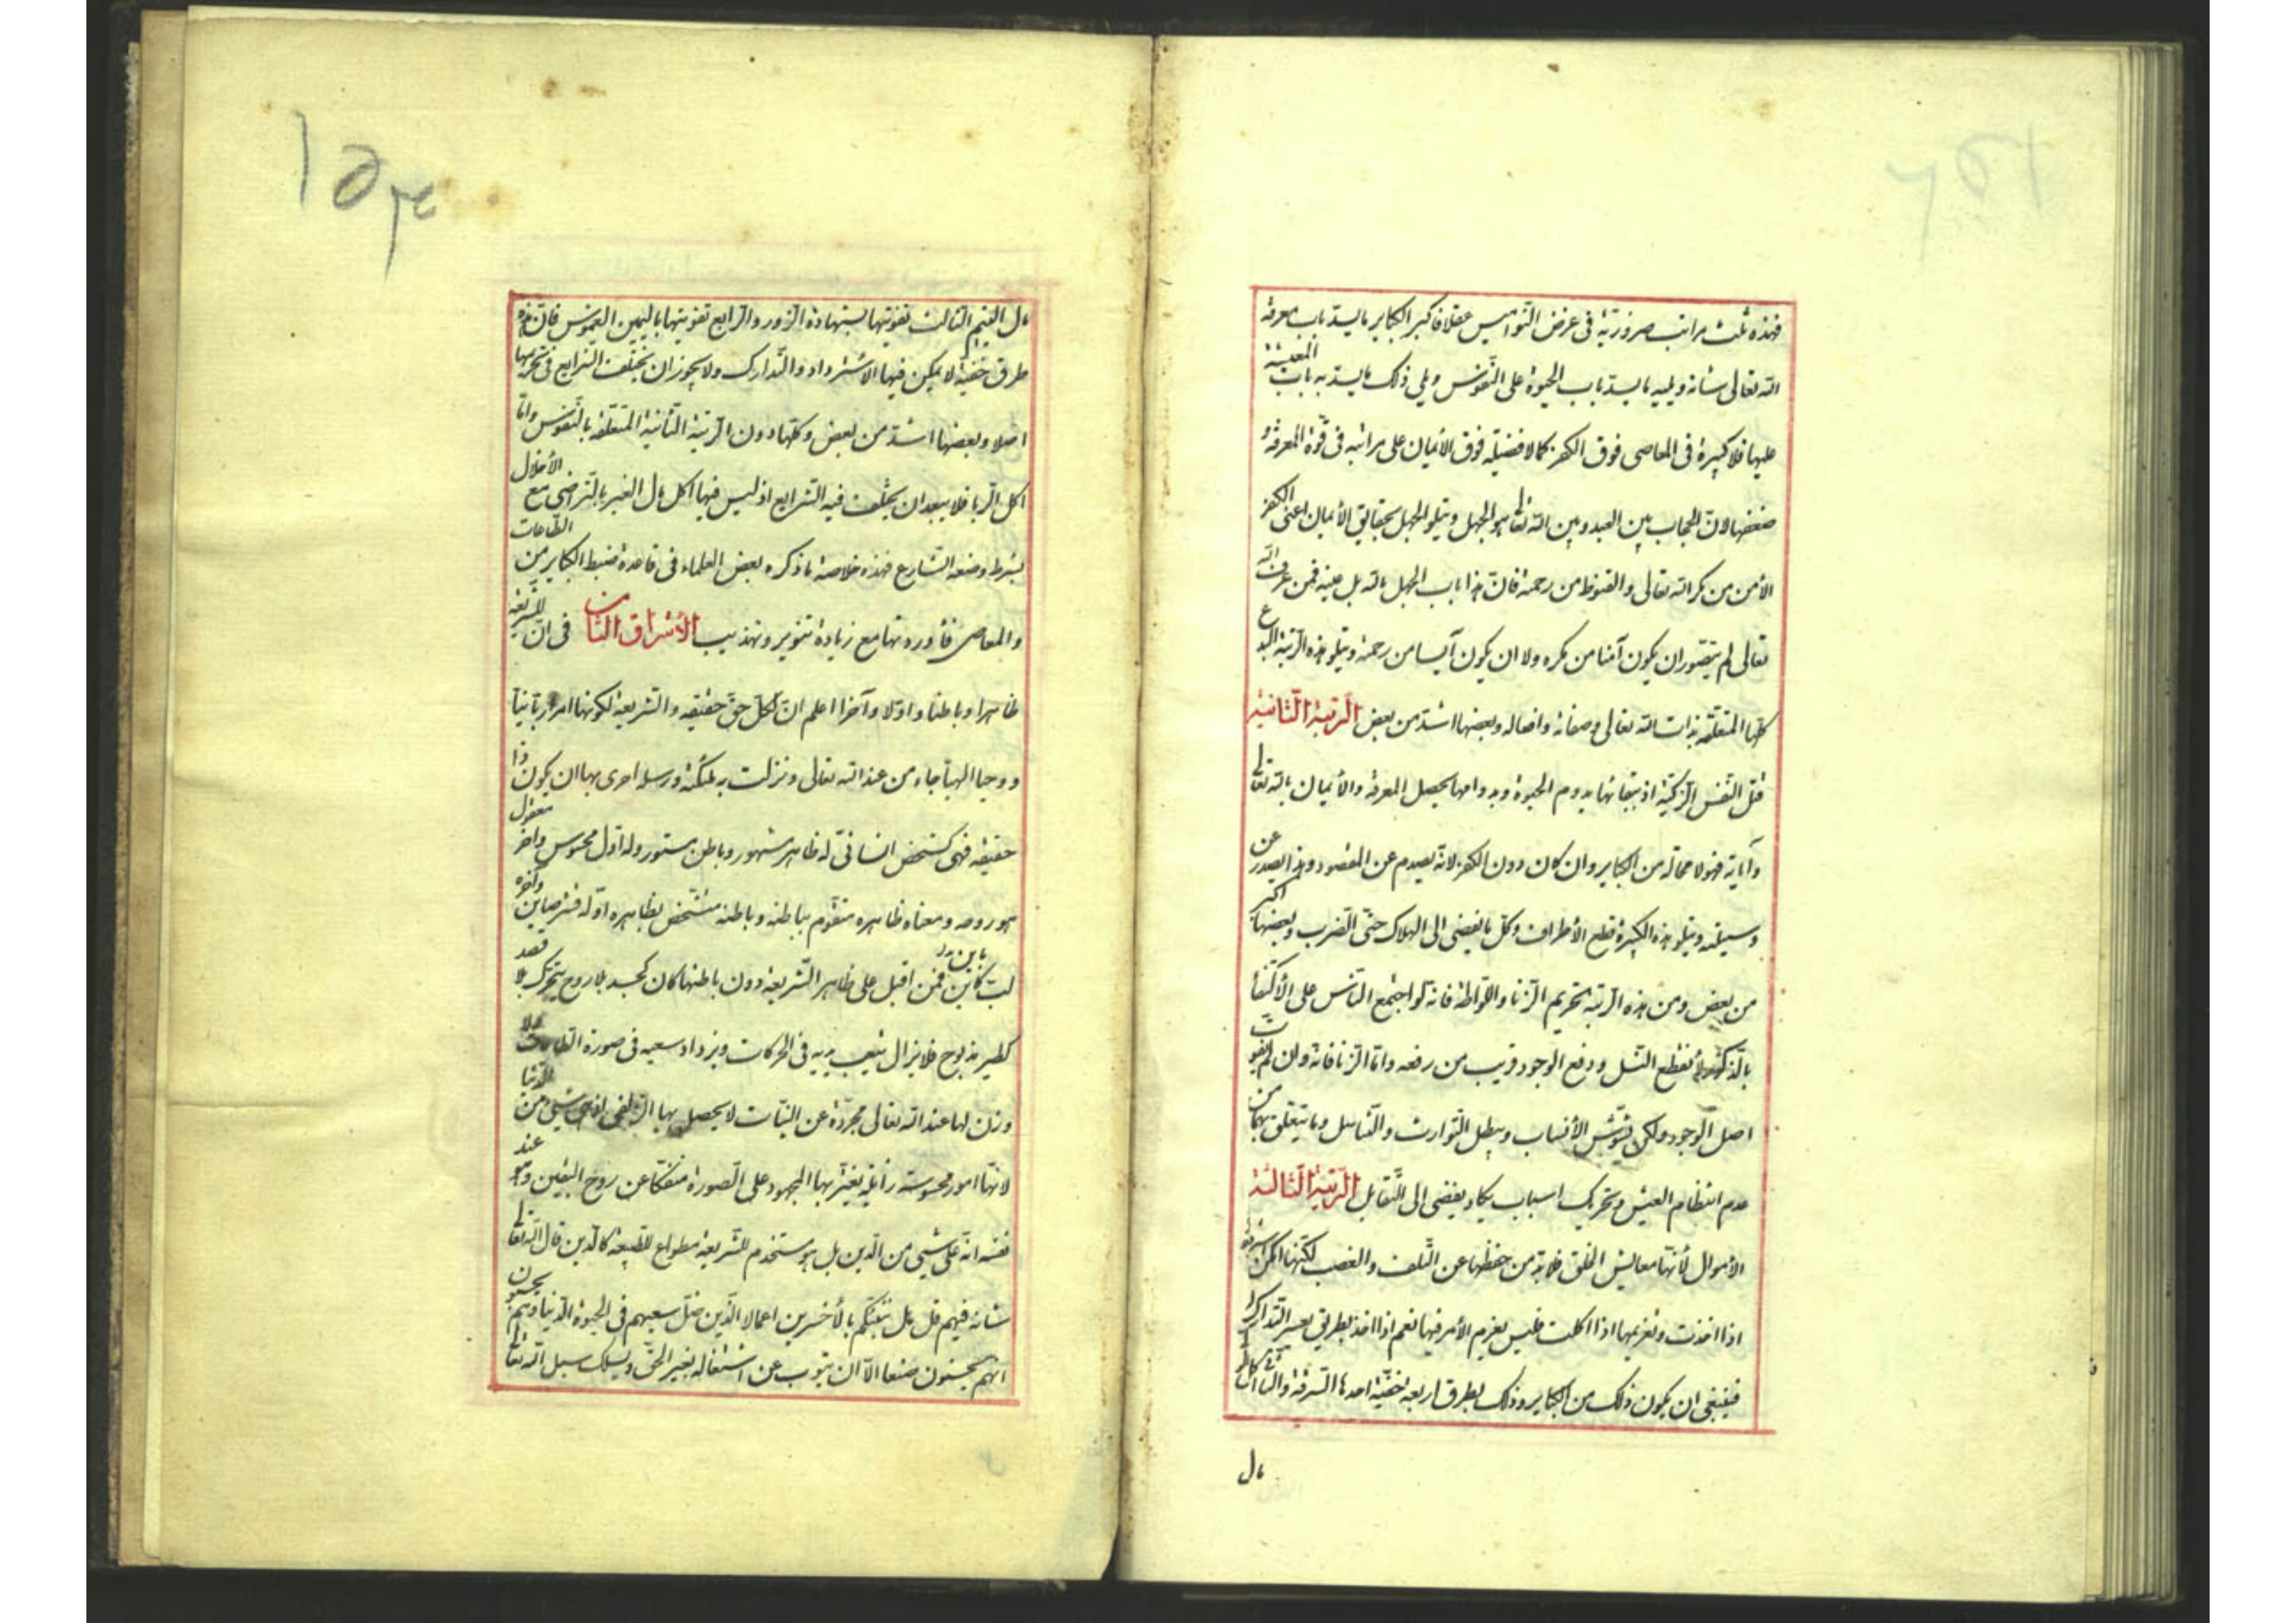 فهذه ثلث مراتب ضرورية فى غرض النواميس عقلا فاكبر الكباير ما يسد باب معرفة
الله تعالى شانه ويليه ما يسد باب الحيوة على النفوس ويلى ذلك ما يسد به باب المعيشة
عليها فلا كبيرة فى المعاصى فوق الكفر كما لا فضيلة فوق الأيمان على مراتبه فى قوة المعرفة و
ضعفها لانّ الحجاب بين العبد وبين الله تعالى هو الجهل ويتلو الجهل بحقايق الأيمان اعنى الكفر
الأمن من مكر الله تعالى والقنوط من رحمته فانّ هذا باب الجهل بالله بل عينه فمن عرف الله
تعالى لم يتصور ان يكون آمنا من مكره ولا ان يكون آيسا من رحمته ويتلو هذه الرتبة البدع
كلها المتعلقة بذات الله تعالى وصفاته وافعاله وبعضها اشد من بعض الرتبة الثانية
قتل النفس الزكية اذ ببقائها يدوم الحيوة وبدوامها يحصل المعرفة والأيمان بالله تعالى
وآياته فهو لا محالة من الكباير وان كان دون الكفر لانه يصدم عن المقصود وهذا يصدر عن
وسيلته ويتلو هذه الكبيرة قطع الأطراف وكل ما يفضى الى الهلاك حتى الضرب وبعضها اكبر
من بعض ومن هذه الرتبة تحريم الزنا واللواطة فانه لو اجتمع الناس على الأكتفاء
بالذكور لأنقطع النسل ودفع الوجود قريب من رفعه واما الزنا فانه وان لم يفوت
اصل الوجود ولكن يشوّش الأنساب ويبطل التوارث والتناسل وما يتعلق بهما من
عدم انتظام العيش وتحريك اسباب يكاد يفضى الى التقابل الرتبة الثالثة
الأموال لأنها معايش الخلق فلا بد من حفظها عن التلف والغصب لكنها امكن استرداد
اذا اخذت وتغريمها اذا اكلت فليس يعزم الأمر فيها نعم اذا اخذ بطريق يعسر التدارك
فينبغى ان يكون ذلك من الكباير وذلك بطرق اربعة خفية احدها السرقة والثانى اكل
مال
مال اليتيم الثالث تفويتها بشهادة الزور والرابع تفويتها باليمين الغموس فانّ هذه
طرق خفية لا يمكن فيها الاسترداد والتدارك ولا يجوز ان يختلف الشرايع فى تحريمها
اصلا وبعضها اشد من بعض وكلها دون الرتبة الثانية المتعلقة بالنفوس واما
اكل الربا فلا يبعد ان يختلف فيه الشرايع اذ ليس فيها اكل مال الغير بالتراضى مع الأخلال
بشرط وضعه الشارع فهذه خلاصة ما ذكره بعض العلماء فى قاعدة ضبط الكباير من الطاعات
والمعاصى فأوردتها مع زيادة تنوير وتهذيب الأشراق الثامن فى انّ للشريعة
ظاهرا وباطنا واولا وآخرا اعلم انّ لكل حق حقيقة والشريعة لكونها امرا ربانيا
ووحيا الهيا جاء من عند الله تعالى ونزلت به ملئكته ورسله احرى بها ان يكون ذا
حقيقة فهى كشخص انسانى له ظاهر مشهور وباطن مستور وله اول محسوس وآخر معقول
هو روحه ومعناه ظاهره متقوم بباطنه وباطنه متشخص بظاهره اوله قشر صاين وآخره
لب كاين فمن اقبل على ظاهر الشريعة دون باطنها كان كجسد بلا روح يتحرك بلا قصد
كطير مذبوح فلا يزال يتعب بدنه فى الحركات ويزداد سعيه فى صورة الطاعات فلا
وزن لها عند الله تعالى مجردة عن النيات لا يحصل بها الزلفى اذ هى شئ من الدنيا
لانها امور محسوسة زايلة يغتر بها الجمهود على الصورة منفكا عن روح اليقين وهو عند
نفسه انه على شئ من الدين بل هو مستخدم للشريعة مطواع للطبيعة كالذين قال الله تعالى
شانه فيهم قل هل ننبئكم بالأخسرين اعمالا الذين ضل سعيهم فى الحيوة الدنيا وهم يحسبون
انهم يحسنون صنعا الا ان يتوب عن اشتغاله بغير الحق ويسلك سبيل الله تعالى